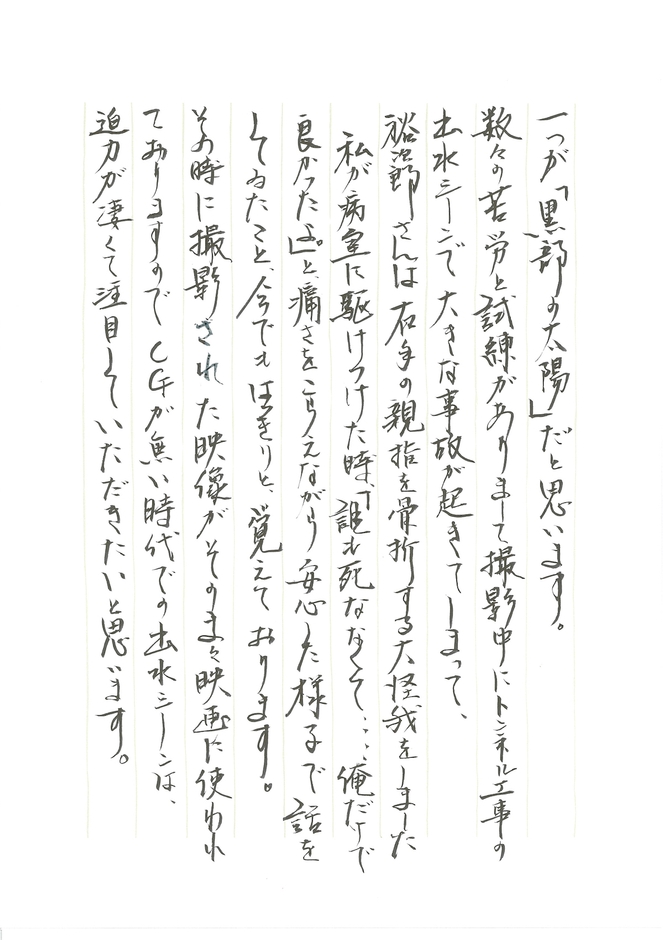 一つが「黒部の太陽」だと思います。
数々の苦労と試練がありまして撮影中にトンネル工事の
出水シーンで大きな事故が起きてしまって、
裕次郎さんは右手の親指を骨折する大怪我をしました
私が病室に駆けつけた時、「誰も死ななくて….俺だけで
良かったよ。」と、痛さをこらえながら安心した様子で話を
してゐたこと、今でもはっきりと、覚えております。
その時に撮影された映像がそのまゝ映画に使われ
ておりますのでCGが無い時代での出水シーンは、
迫力が凄くて注目していただきたいと思います。